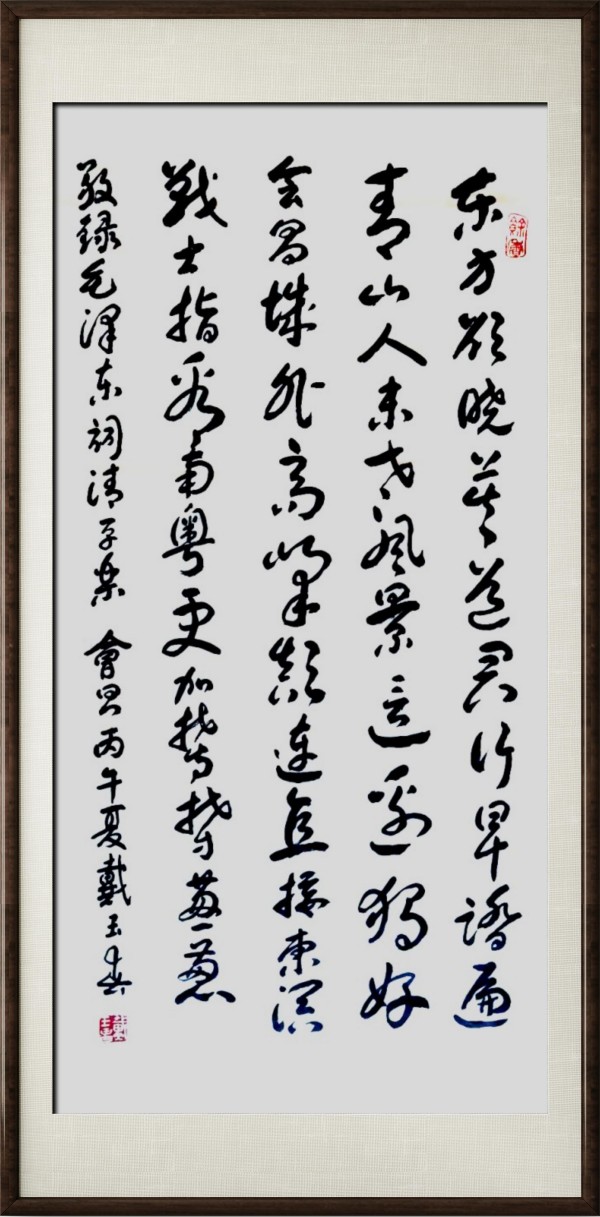 东方欲晓莫道君行早踏遍
青山人未老风景这边独好
会昌城外高峰颠连直接東溟
战士指看南粤更加郁郁葱葱
敬録毛泽东词清平乐 會昌丙午夏戴玉